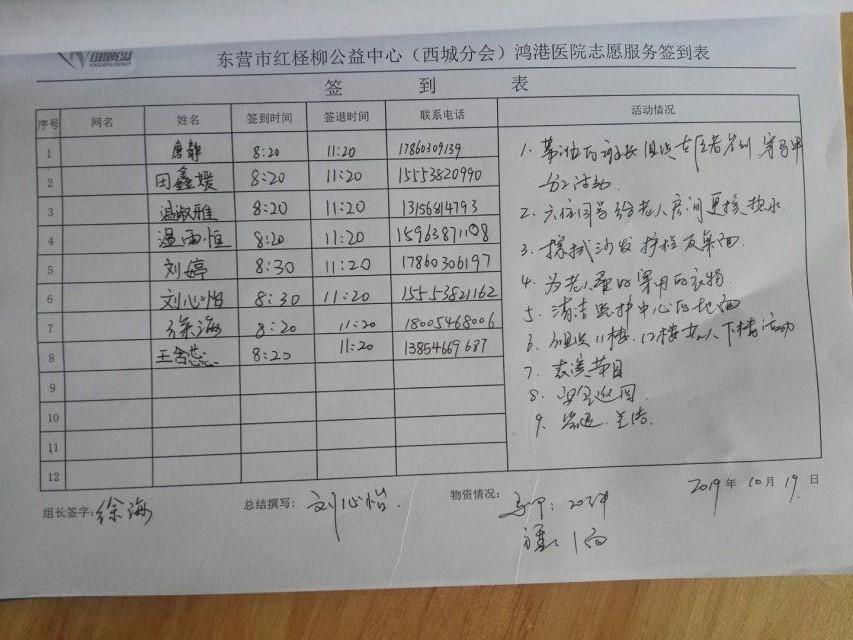 东营市红柽柳公益中心（西城分会）鸿港医院志愿服务签到表
签 到 表
序号 网名 姓名 签到时间 签退时间 联系电话 活动情况
1 唐静 8:20 11:20 17860309139
2 田鑫媛 8:20 11:20 15553820990
3 温淑雅 8:20 11:20 13156814793
4 温雨恒 8:20 11:20 15963871108
5 刘婷 8:30 11:20 17860306197
6 刘心怡 8:30 11:20 15553821162
7 徐海 8:20 11:20 18005468006
8 王含蕊 8:20 11:20 13854669687
9
10
11
12
1.
分工活动.
2. 六位同学给老人房间更换热水.
3. 擦拭沙发 护栏及桌面.
4. 为老人 衣物
5. 清洁监护中心 地面
6. 组织11楼、12楼老人下楼活动
7. 表演节目
8. 安全巡回
9. 签退.
组长签字:徐海 总结撰写: 刘心怡. 物资情况: 马甲: 20件
1面
2019年10月19日